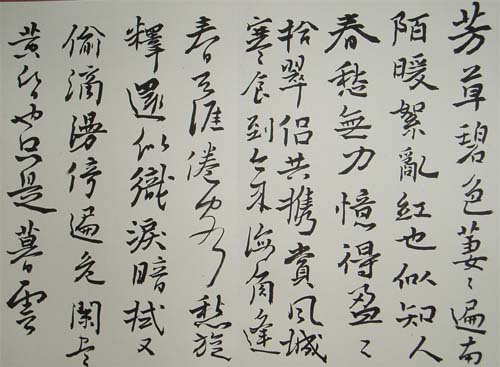 芳草碧色萋〻遍南
陌暖絮亂紅也似知人
春愁無力憶得盈〻
拾翠侶共攜賞風城
寒食到今来海角逢
春天涯倦客愁旋
釋還似織淚暗拭又
偷滴漫停遍危闌尽
黄昏也只是暮雲